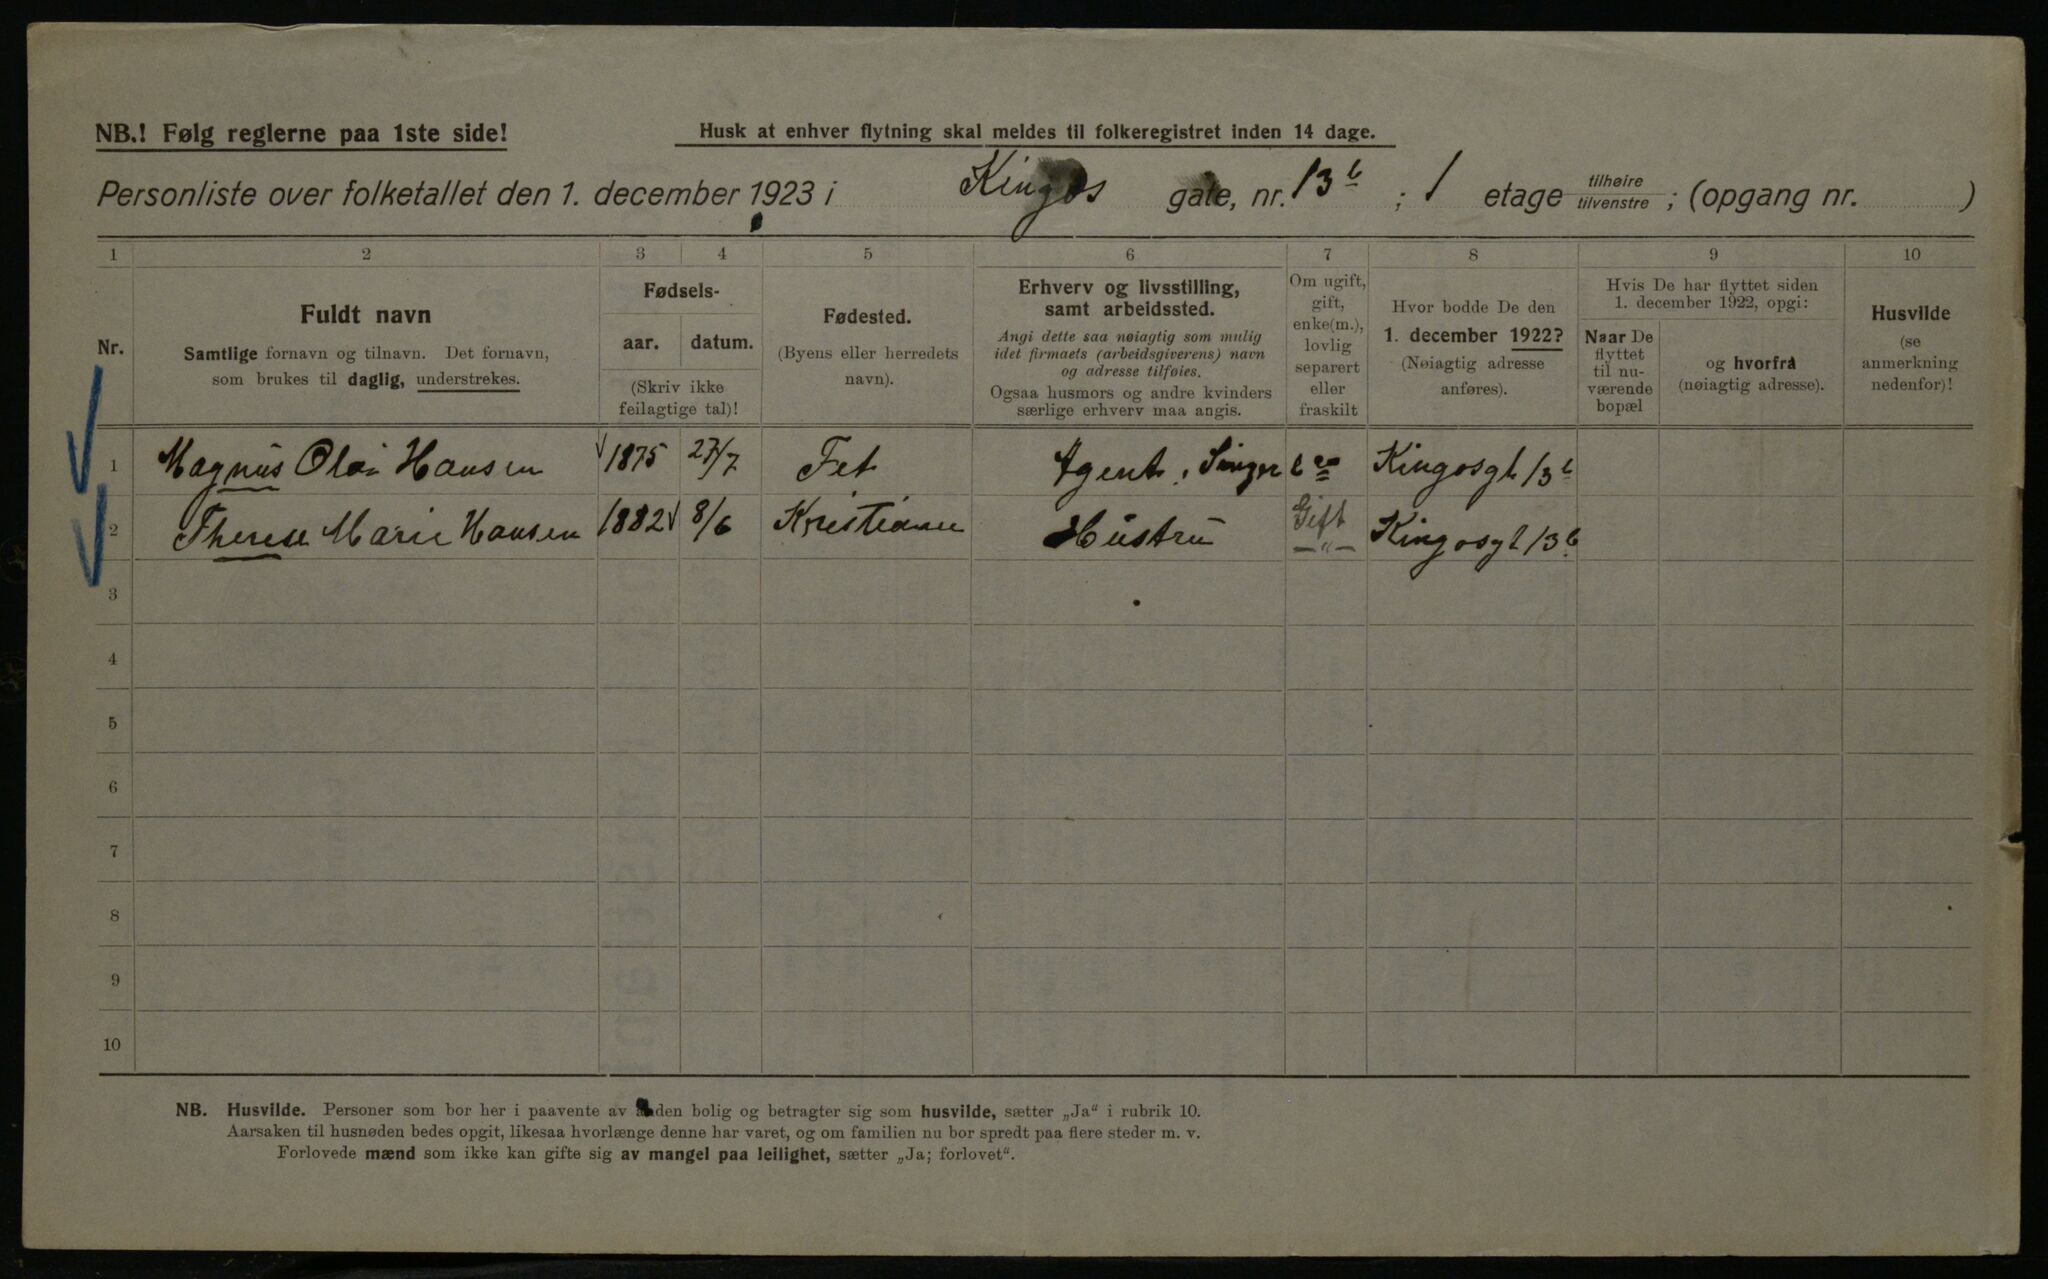 NB.! Følg reglerne paa 1ste side!
Husk at enhver flytning skal meldes til folkeregistret inden 14 dage.
Personliste over folketallet den 1. december 1923 i Kingos gate, nr. 13 b ; 1 etage tilhøire tilvenstre ; (opgang nr. )
1 2 3 4 5 6 7 8 9 10
Nr.
Fuldt navn
Samtlige fornavn og tilnavn. Det fornavn,
som brukes til daglig, understrekes.
Fødsels-
aar. datum.
(Skriv ikke
feilagtige tal)!
Fødested.
(Byens eller herredets
navn).
Erhverv og livsstilling,
samt arbeidssted.
Angi dette saa nøiagtig som mulig
idet firmaets (arbeidsgiverens) navn
og adresse tilføies.
Ogsaa husmors og andre kvinders
særlige erhverv maa angis.
Om ugift,
gift,
enke(m.),
lovlig
separert
eller
fraskilt
Hvor bodde De den
1. december 1922?
(Nøiagtig adresse
anføres).
Hvis De har flyttet siden
1. december 1922, opgi:
Naar De
flyttet
til nu-
værende
bopæl
og hvorfra
(nøiagtig adresse).
Husvilde
(se
anmerkning
nedenfor)!
1 Magnus Olai Hansen 1875 27/7 Fet Agent, Singer Kingosgt 13 b
2 Therese Marie Hansen 1882 8/6 Kristiania Hustru Gift Kingosgt 13 b
—"—
3
4
5
6
7
8
9
10
NB. Husvilde. Personer som bor her i paavente av anden bolig og betragter sig som husvilde, sætter „Ja" i rubrik 10.
Aarsaken til husnøden bedes opgit, likesaa hvorlænge denne har varet, og om familien nu bor spredt paa flere steder m. v.
Forlovede mænd som ikke kan gifte sig av mangel paa leilighet, sætter „Ja; forlovet".